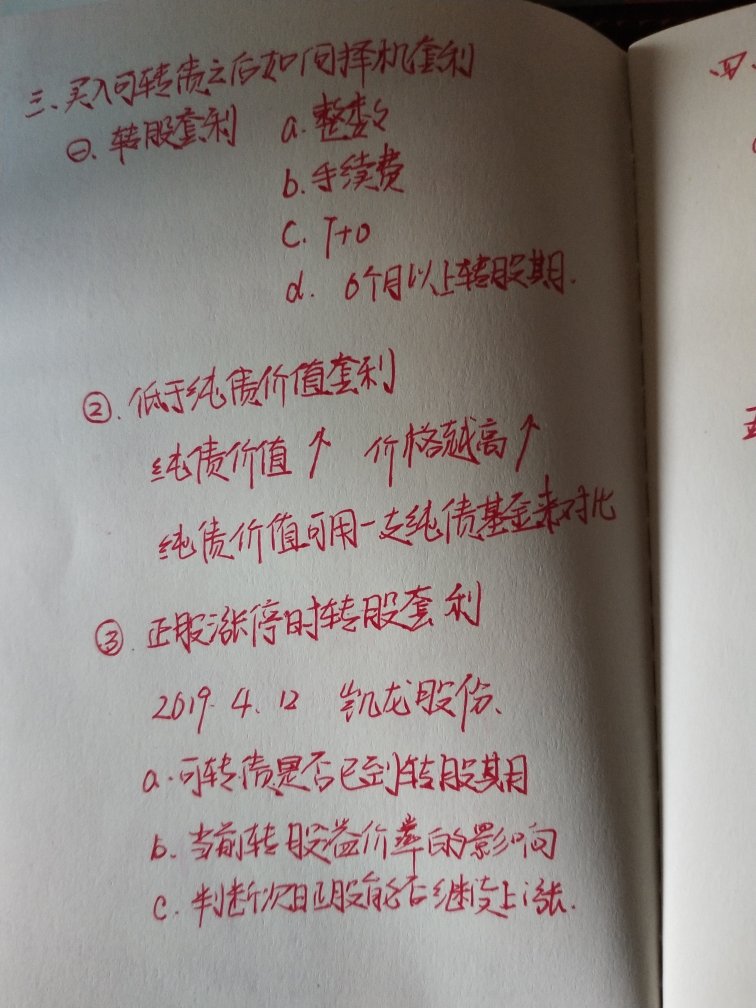 三、买入可转债之后如何择机套利
㊀. 转股套利 a. 整数
b. 手续费
c. T+0
d. 6个月以上转股期.
②. 低于纯债价值套利
纯债价值↑ 价格越高↑
纯债价值可用一支纯债基金来对比
③. 正股涨停时转股套利
2019. 4. 12 凯龙股份、
a. 可转债是否已到转股期
b. 当前转股溢价率的影响
c. 判断次日正股能否继续上涨.
四、